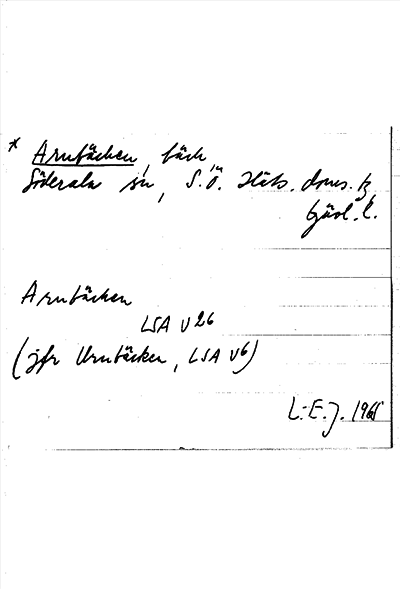 * Arnbäcken, bäck
Söderala sn, S.Ö. Häls. doms.
Gävl. l.
Arnbäcken
LSA U 26
(jfr Urnbäcken, LSA U6)
L-E.J. 1965